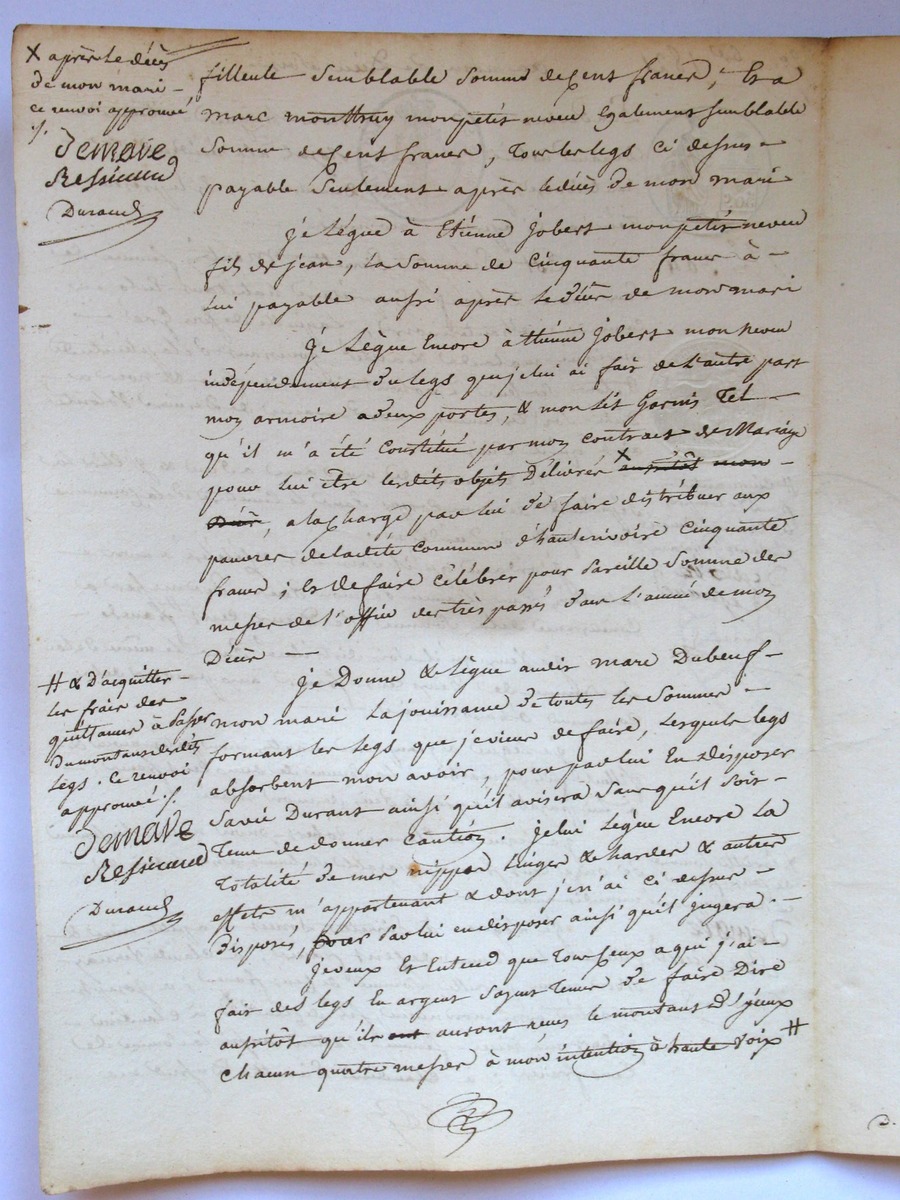 X après le décès
de mon mari –
ce renvoi approuvé
./.
Demave
Ressicaud
Duraud
filleule semblable somme de Cent francs, Et a
marc monttruy mon petit neveu Egalement semblable
somme de Cent francs, Tous les legs ci dessus =
payable seulement après le décès de mon mari
je Lègue à Etiénne jobert mon petit neveu
fils de jean, la somme de cinquante francs à –
Lui payable aussi après le décès de mon mari
je Lègue Encore à Etiénne jobert mon neveu
indépendament du legs que je lui ai fair de L'autre part
mon armoire a deux portes, & mon Lit Garnis Tel –
qu'il m'a été Constitué par mon contract de Mariage
pour lui être les dits objets Délivrés X aussitôt mon –
Décès, a la charge par lui de faire distribuer aux
pauvres de la dite commune d'hauterivoire cinquante
francs ; Et de faire Célébrer pour pareille somme des
messes de l'office des très passés dans L'année de mon
Décès —
je Donne & Lègue audis marc Dubeuf –
mon mari La jouissance de toutes les sommes –
formant les legs que je viens de faire, Lesquels legs
absorbent mon avoir, pour par lui En disposer
sa vie Durant ainsi qu'il avisera sans qu'il soit –
Tenu de donner Caution. je lui Lègue Encore La
Totalité de mes nippes Linges & hardes & autres
effets m'appartenant & dont je n'ai ci dessus –
disposés, pour par lui en disposer ainsi qu'il jugera. –
je veux Et Entend que Tous Ceux a qui j'ai –
fair des legs En argent soyent Tenus de faire Dire
aussitôt qu'ils ont auront reçus le montant d'iceux
chacun quatre messes à mon intention à haute voix #
# & D'acquitter –
les frais des
quittances à passer
du montant desdits
legs. Ce renvoi
approuvé ./.
Demave
Ressicaud
Duraud